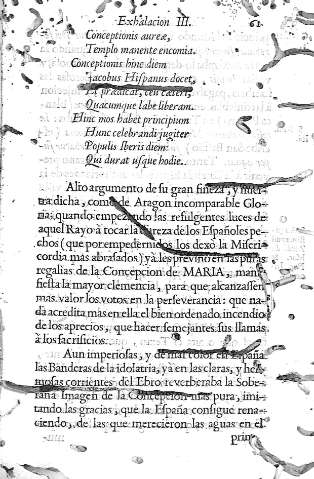 Exhalacion III. 61
Conceptionis aureæ,
Templo manente encomia.
Conceptionis hinc diem
Jacobus Hispanus docet,
Et prædicat, ceu cæteri,
Quacumque labe liberam.
Hinc mos habet principium
Hunc celebrandi jugiter
Populis Iberis diem:
Qui durat usque hodie.
Alto argumento de su gran fineza, y nuestra dicha,
como de Aragon incomparable Glo-
ria, quando empezando las refulgentes luces de
aquel Rayo à tocar la dureza de los Españoles pe-
chos (que por empedernidos los dexò la Miseri-
cordia mas abrasados) yà les previno en las puras
regalias de la Concepcion de MARIA, mani-
fiesta la mayor clemencia, para que alcanzassen
mas valor los votos en la perseverancia: que na-
da acredita mas en ella el bien ordenado incendio
de los aprecios, que hacer semejantes sus llamas
à los sacrificios.
Aun imperiosas, y de mal color en España
las Banderas de la idolatria, yà en las claras, y her-
mosas corrientes del Ebro reverberaba la Sobe-
rana Imagen de la Concepcion mas pura, imi-
tando las gracias, que la España consigue rena-
ciendo, de las que merecieron las aguas en el
prin-